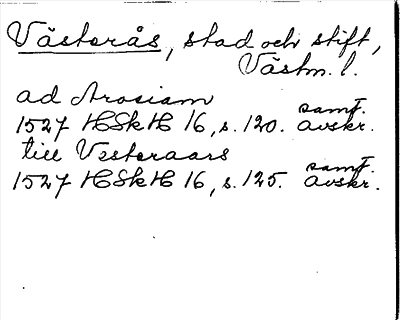 Västerås, stad och stift,
Västm. l.
ad Arosiam
1527 HSkH 16, s. 120. samt. avskr.
till Vesteraars
1527 HSkH 16, s. 125. samt. avskr.